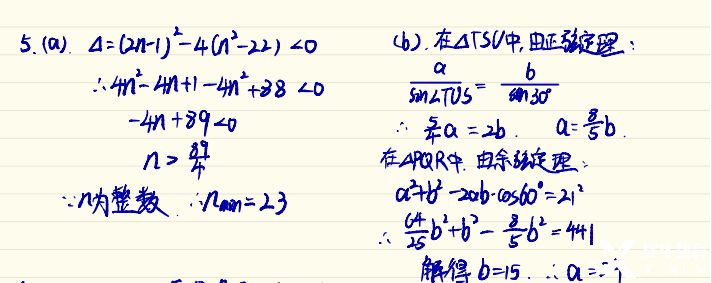 5. (a) Δ=(2n-1)²-4(n²-22)<0
∴4n²-4n+1-4n²+88<0
-4n+89<0
n>89/4
∵n为整数 ∴nmin=23
(b). 在△TSU中,由正弦定理:
a/sin∠TUS = b/sin30°
∴ 5/4a=2b. a=8/5b.
在△PQR中,由余弦定理:
a²+b²-2ab·cos60°=21²
∴ 64/25b²+b²-8/5b²=441
解得 b=15. ∴a=